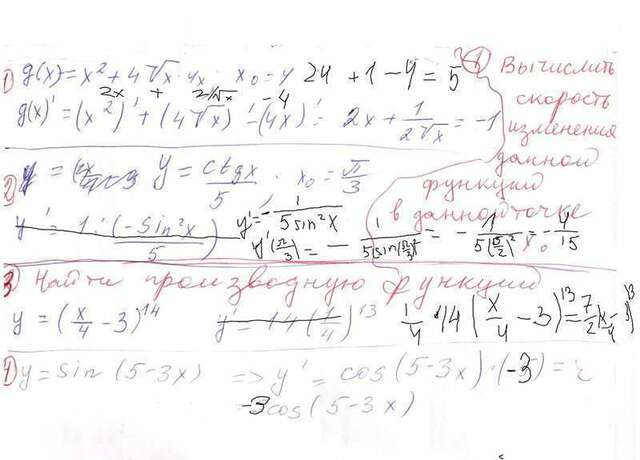 1) g(x)=x²+4√x-4x  x₀=4  24 +1-4=5
2x + 2/√x -4
g(x)'=(x²)'+(4√x)'-(4x)'= 2x+1/2√x=-1
④ Вычислить
скорость
изменения
данной
функции
в данной точке
x₀
2) y = ctgx/5  x₀=π/3
y'=1:(-sin²x)/5  y'=-1/5sin²x
y'(π/3)=-1/5(sin(π/3))²=-1/5(√3/2)²=-4/15
3 Найти производную функции
y=(x/4-3)¹⁴  y'=14(1/4)¹³  1/4·14(x/4-3)¹³=7/2(x/4-3)¹³
1) y=sin(5-3x) => y'=cos(5-3x)·(-3)=
-3cos(5-3x)